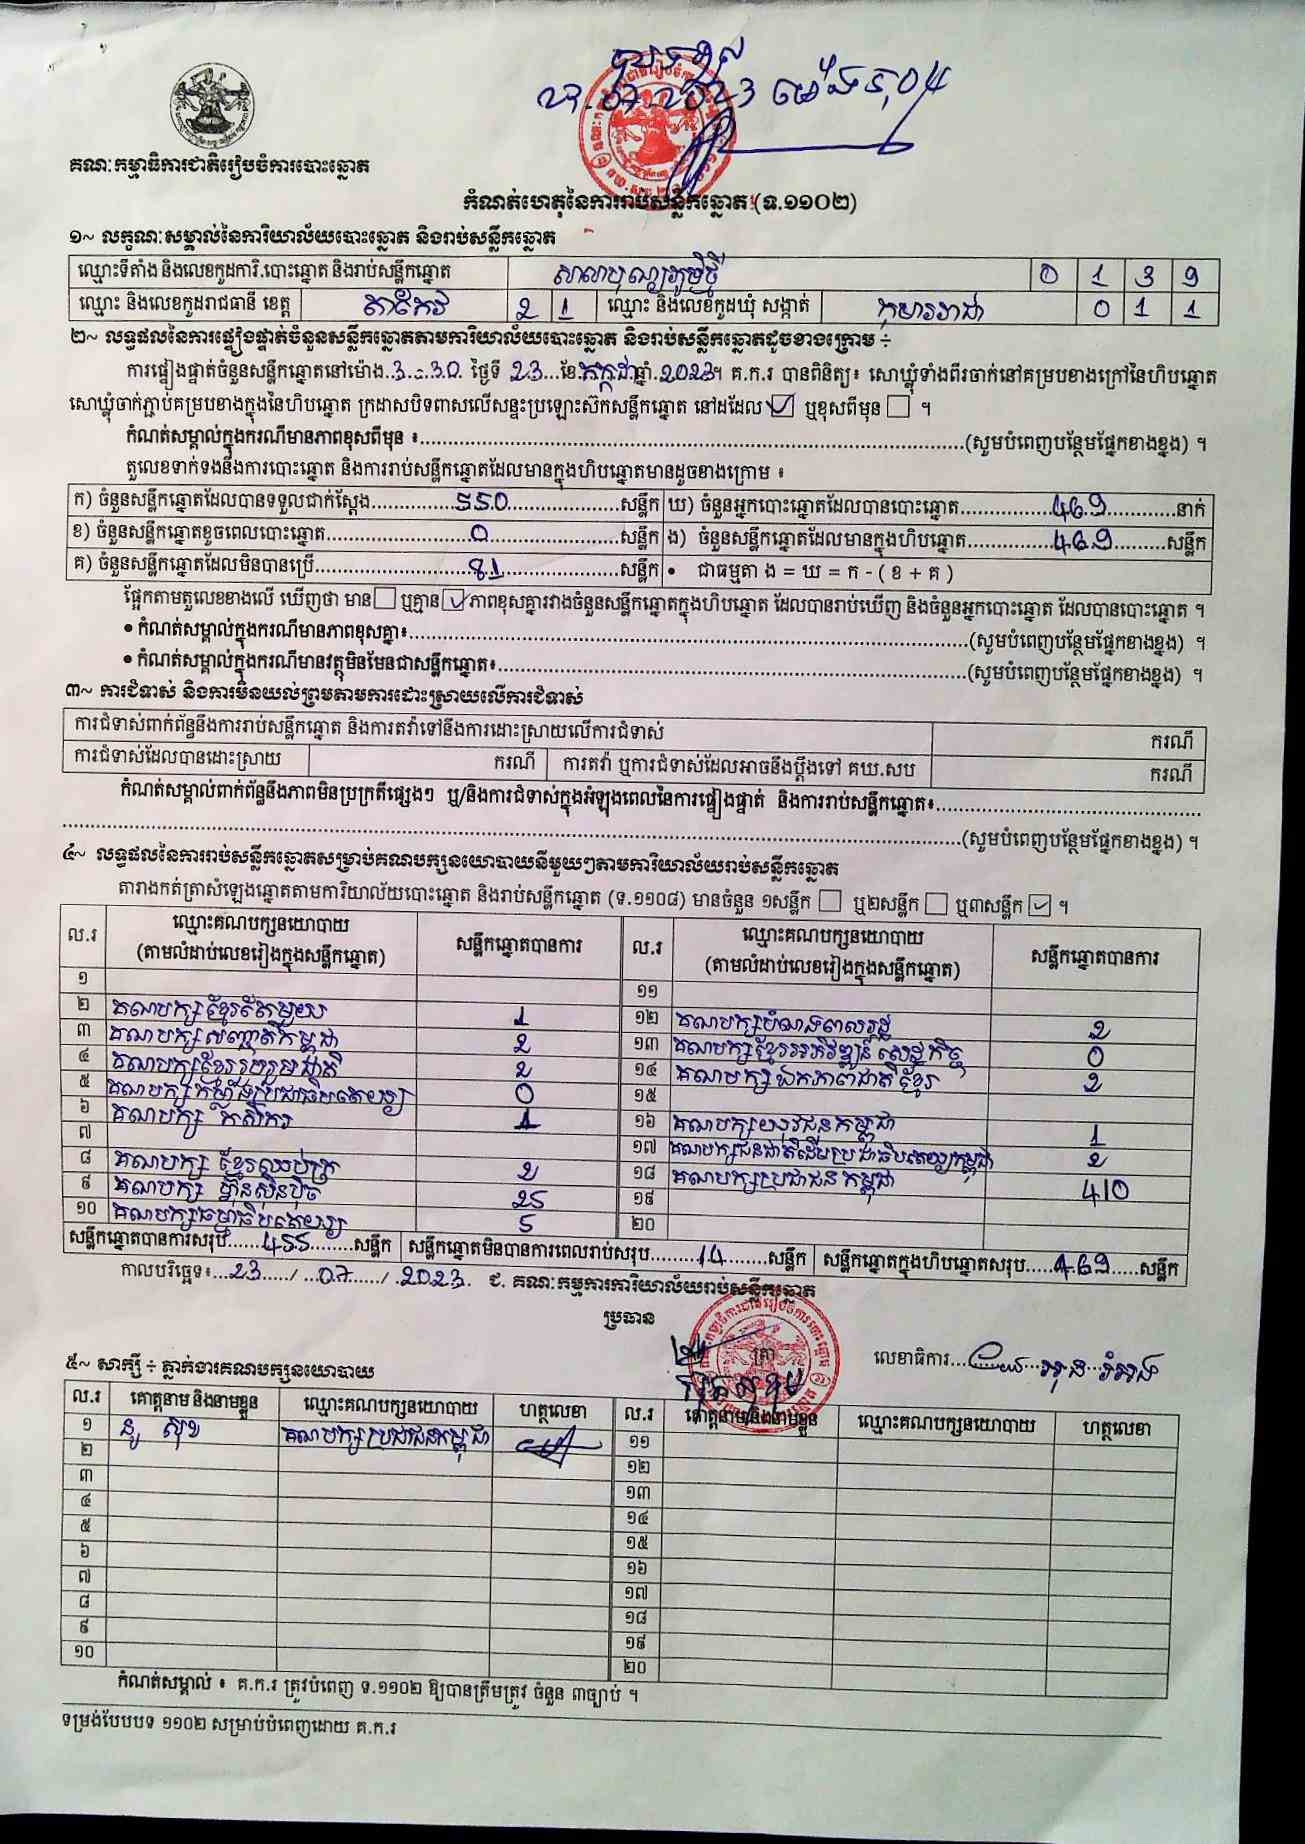 គណៈកម្មាធិការជាតិរៀបចំការបោះឆ្នោត
កំណត់ហេតុនៃការរាប់សន្លឹកឆ្នោត (ទ.១១០២)
១~ លក្ខណៈសម្គាល់នៃការិយាល័យបោះឆ្នោត និងរាប់សន្លឹកឆ្នោត
ឈ្មោះទីតាំង និងលេខកូដការិ.បោះឆ្នោត និងរាប់សន្លឹកឆ្នោត សាលាបុណ្យភូមិថ្មី 0 1 3 9
ឈ្មោះ និងលេខកូដរាជធានី ខេត្ត តាកែវ 2 1 ឈ្មោះ និងលេខកូដឃុំ សង្កាត់ កុមាររាជា 0 1 1
២~ លទ្ធផលនៃការផ្ទៀងផ្ទាត់ចំនួនសន្លឹកឆ្នោតតាមការិយាល័យបោះឆ្នោត និងរាប់សន្លឹកឆ្នោតដូចខាងក្រោម ÷
ការផ្ទៀងផ្ទាត់ចំនួនសន្លឹកឆ្នោតនៅម៉ោង..3..:.30. ថ្ងៃទី .23...ខែ.កក្កដា.ឆ្នាំ.2023។ គ.ក.រ បានពិនិត្យ៖ សោឃ្លុំទាំងពីរចាក់នៅគម្របខាងក្រៅនៃហិបឆ្នោត
សោឃ្លុំចាក់ភ្ជាប់គម្របខាងក្នុងនៃហិបឆ្នោត ក្រដាសបិទពាសលើសន្ទះប្រឡោះស៊កសន្លឹកឆ្នោត នៅដដែល ☑ ឬខុសពីមុន ☐ ។
កំណត់សម្គាល់ក្នុងករណីមានភាពខុសពីមុន ៖..........(សូមបំពេញបន្ថែមផ្នែកខាងខ្នង) ។
តួលេខទាក់ទងនឹងការបោះឆ្នោត និងការរាប់សន្លឹកឆ្នោតដែលមានក្នុងហិបឆ្នោតមានដូចខាងក្រោម ៖
ក) ចំនួនសន្លឹកឆ្នោតដែលបានទទួលជាក់ស្តែង..........550..........សន្លឹក ឃ) ចំនួនអ្នកបោះឆ្នោតដែលបានបោះឆ្នោត..........469..........នាក់
ខ) ចំនួនសន្លឹកឆ្នោតខូចពេលបោះឆ្នោត..........0..........សន្លឹក ង) ចំនួនសន្លឹកឆ្នោតដែលមានក្នុងហិបឆ្នោត..........469..........សន្លឹក
គ) ចំនួនសន្លឹកឆ្នោតដែលមិនបានប្រើ..........81..........សន្លឹក • ជាធម្មតា ង = ឃ = ក - ( ខ + គ )
ផ្អែកតាមតួលេខខាងលើ ឃើញថា មាន ☐ ឬគ្មាន ☑ ភាពខុសគ្នារវាងចំនួនសន្លឹកឆ្នោតក្នុងហិបឆ្នោត ដែលបានរាប់ឃើញ និងចំនួនអ្នកបោះឆ្នោត ដែលបានបោះឆ្នោត ។
• កំណត់សម្គាល់ក្នុងករណីមានភាពខុសគ្នា៖..........(សូមបំពេញបន្ថែមផ្នែកខាងខ្នង) ។
• កំណត់សម្គាល់ក្នុងករណីមានវត្ថុមិនមែនជាសន្លឹកឆ្នោត៖..........(សូមបំពេញបន្ថែមផ្នែកខាងខ្នង) ។
៣~ ការជំទាស់ និងការមិនយល់ព្រមតាមការដោះស្រាយលើការជំទាស់
ការជំទាស់ពាក់ព័ន្ធនឹងការរាប់សន្លឹកឆ្នោត និងការតវ៉ាទៅនឹងការដោះស្រាយលើការជំទាស់ ករណី
ការជំទាស់ដែលបានដោះស្រាយ ករណី ការតវ៉ា ឬការជំទាស់ដែលអាចនឹងប្តឹងទៅ គឃ.សប ករណី
កំណត់សម្គាល់ពាក់ព័ន្ធនឹងភាពមិនប្រក្រតីផ្សេងៗ ឬ/និងការជំទាស់ក្នុងអំឡុងពេលនៃការផ្ទៀងផ្ទាត់ និងការរាប់សន្លឹកឆ្នោត៖..........
..........(សូមបំពេញបន្ថែមផ្នែកខាងខ្នង) ។
៤~ លទ្ធផលនៃការរាប់សន្លឹកឆ្នោតសម្រាប់គណបក្សនយោបាយនីមួយៗតាមការិយាល័យរាប់សន្លឹកឆ្នោត
តារាងកត់ត្រាសំឡេងឆ្នោតតាមការិយាល័យបោះឆ្នោត និងរាប់សន្លឹកឆ្នោត (ទ.១១០៨) មានចំនួន ១សន្លឹក ☐ ឬ២សន្លឹក ☐ ឬ៣សន្លឹក ☑ ។
ល.រ ឈ្មោះគណបក្សនយោបាយ (តាមលំដាប់លេខរៀងក្នុងសន្លឹកឆ្នោត) សន្លឹកឆ្នោតបានការ ល.រ ឈ្មោះគណបក្សនយោបាយ (តាមលំដាប់លេខរៀងក្នុងសន្លឹកឆ្នោត) សន្លឹកឆ្នោតបានការ
១ ១១
២ គណបក្សខ្មែរតែមួយ 1 ១២ គណបក្សបំណងពលរដ្ឋ 2
៣ គណបក្សសញ្ជាតិកម្ពុជា 2 ១៣ គណបក្សខ្មែរអភិវឌ្ឍន៍សេដ្ឋកិច្ច 0
៤ គណបក្សខ្មែររួបរួមជាតិ 2 ១៤ គណបក្សឯកភាពជាតិខ្មែរ 2
៥ គណបក្សកម្លាំងប្រជាធិបតេយ្យ 0 ១៥
៦ គណបក្ស កសិករ 1 ១៦ គណបក្សយុវជនកម្ពុជា 1
៧ ១៧ គណបក្សជនជាតិដើមប្រជាធិបតេយ្យកម្ពុជា 2
៨ គណបក្ស ខ្មែរឈប់ក្រ 2 ១៨ គណបក្សប្រជាជនកម្ពុជា 410
៩ គណបក្ស ហ្វ៊ុនស៊ិនប៉ិច 25 ១៩
១០ គណបក្សធម្មាធិបតេយ្យ 5 ២០
សន្លឹកឆ្នោតបានការសរុប......455......សន្លឹក សន្លឹកឆ្នោតមិនបានការពេលរាប់សរុប......14......សន្លឹក សន្លឹកឆ្នោតក្នុងហិបឆ្នោតសរុប.....469.....សន្លឹក
កាលបរិច្ឆេទ៖...23...../...07...../.2023. ជ. គណៈកម្មការការិយាល័យរាប់សន្លឹកឆ្នោត
ប្រធាន
ត្រា
លេខាធិការ
៥~ សាក្សី ÷ ភ្នាក់ងារគណបក្សនយោបាយ
ល.រ គោត្តនាម និងនាមខ្លួន ឈ្មោះគណបក្សនយោបាយ ហត្ថលេខា ល.រ គោត្តនាម និងនាមខ្លួន ឈ្មោះគណបក្សនយោបាយ ហត្ថលេខា
១ នូ សុខ គណបក្សប្រជាជនកម្ពុជា ១១
២ ១២
៣ ១៣
៤ ១៤
៥ ១៥
៦ ១៦
៧ ១៧
៨ ១៨
៩ ១៩
១០ ២០
កំណត់សម្គាល់ ៖ គ.ក.រ ត្រូវបំពេញ ទ.១១០២ ឱ្យបានត្រឹមត្រូវ ចំនួន ៣ច្បាប់ ។
ទម្រង់បែបបទ ១១០២ សម្រាប់បំពេញដោយ គ.ក.រ